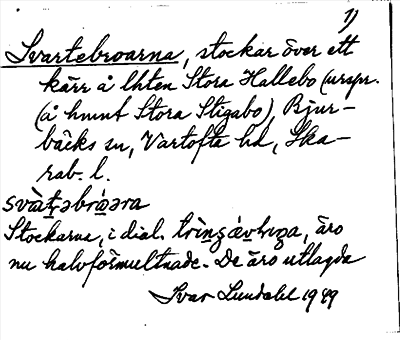 1)
Svartebroarna, stockar över ett
kärr å lhten Stora Hallebo (urspr.
(å hmnt Stora Stigabo), Bjur-
bäcks sn, Vartofta hd, Ska-
rab. l.
Stockarna, i dial.
äro
nu halvförmultnade. De äro utlagda
Ivar Lundahl 1949